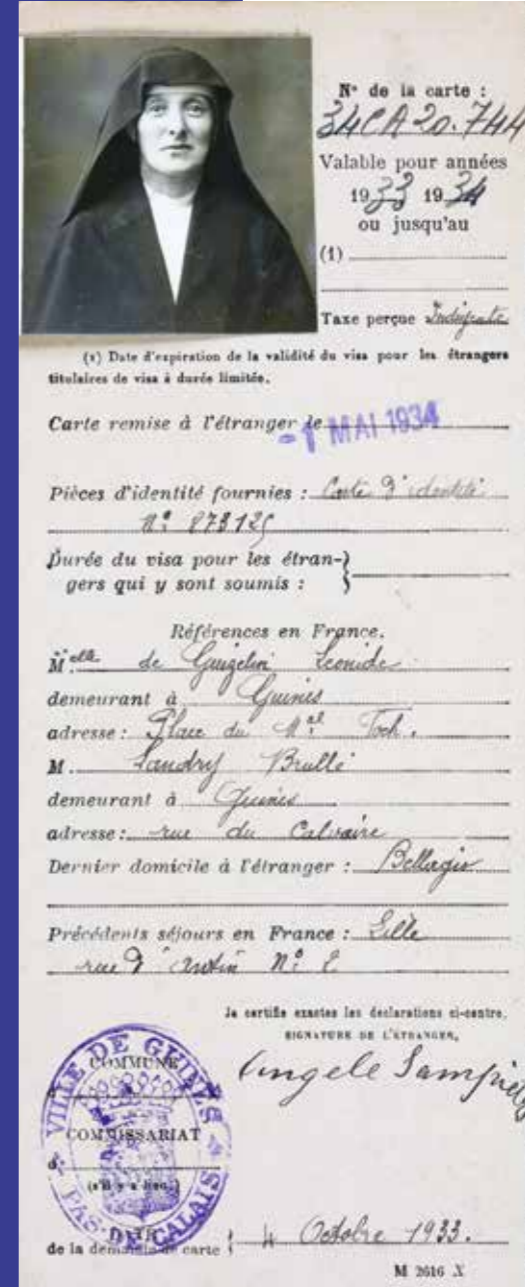 N° de la carte :
34CA20.744
Valable pour années
1933 1934
ou jusqu'au
(1)
Taxe perçue Indigente
(1) Date d'expiration de la validité du visa pour les étrangers
titulaires de visa à durée limitée.
Carte remise à l'étranger le
-1 MAI 1934
Pièces d'identité fournies : Carte d'identité
N° 873125
Durée du visa pour les étran-}
gers qui y sont soumis : }
Références en France.
Melle de Guizelin Leonide
demeurant à Guines
adresse : Place du Mal Foch.
M. Landry Brullé
demeurant à Guines
adresse : rue du Calvaire
Dernier domicile à l'étranger : Bellagio
Précédents séjours en France : Lille
rue d'Antin N°
Je certifie exactes les déclarations ci-contre.
SIGNATURE DE L'ÉTRANGER,
Angele
VILLE DE GUINES
PAS-DE-CALAIS
COMMUNE
d
COMMISSARIAT
d
(s'il y a lieu.)
DATE
de la demande de carte { 4 Octobre 1933.
M 2616 X